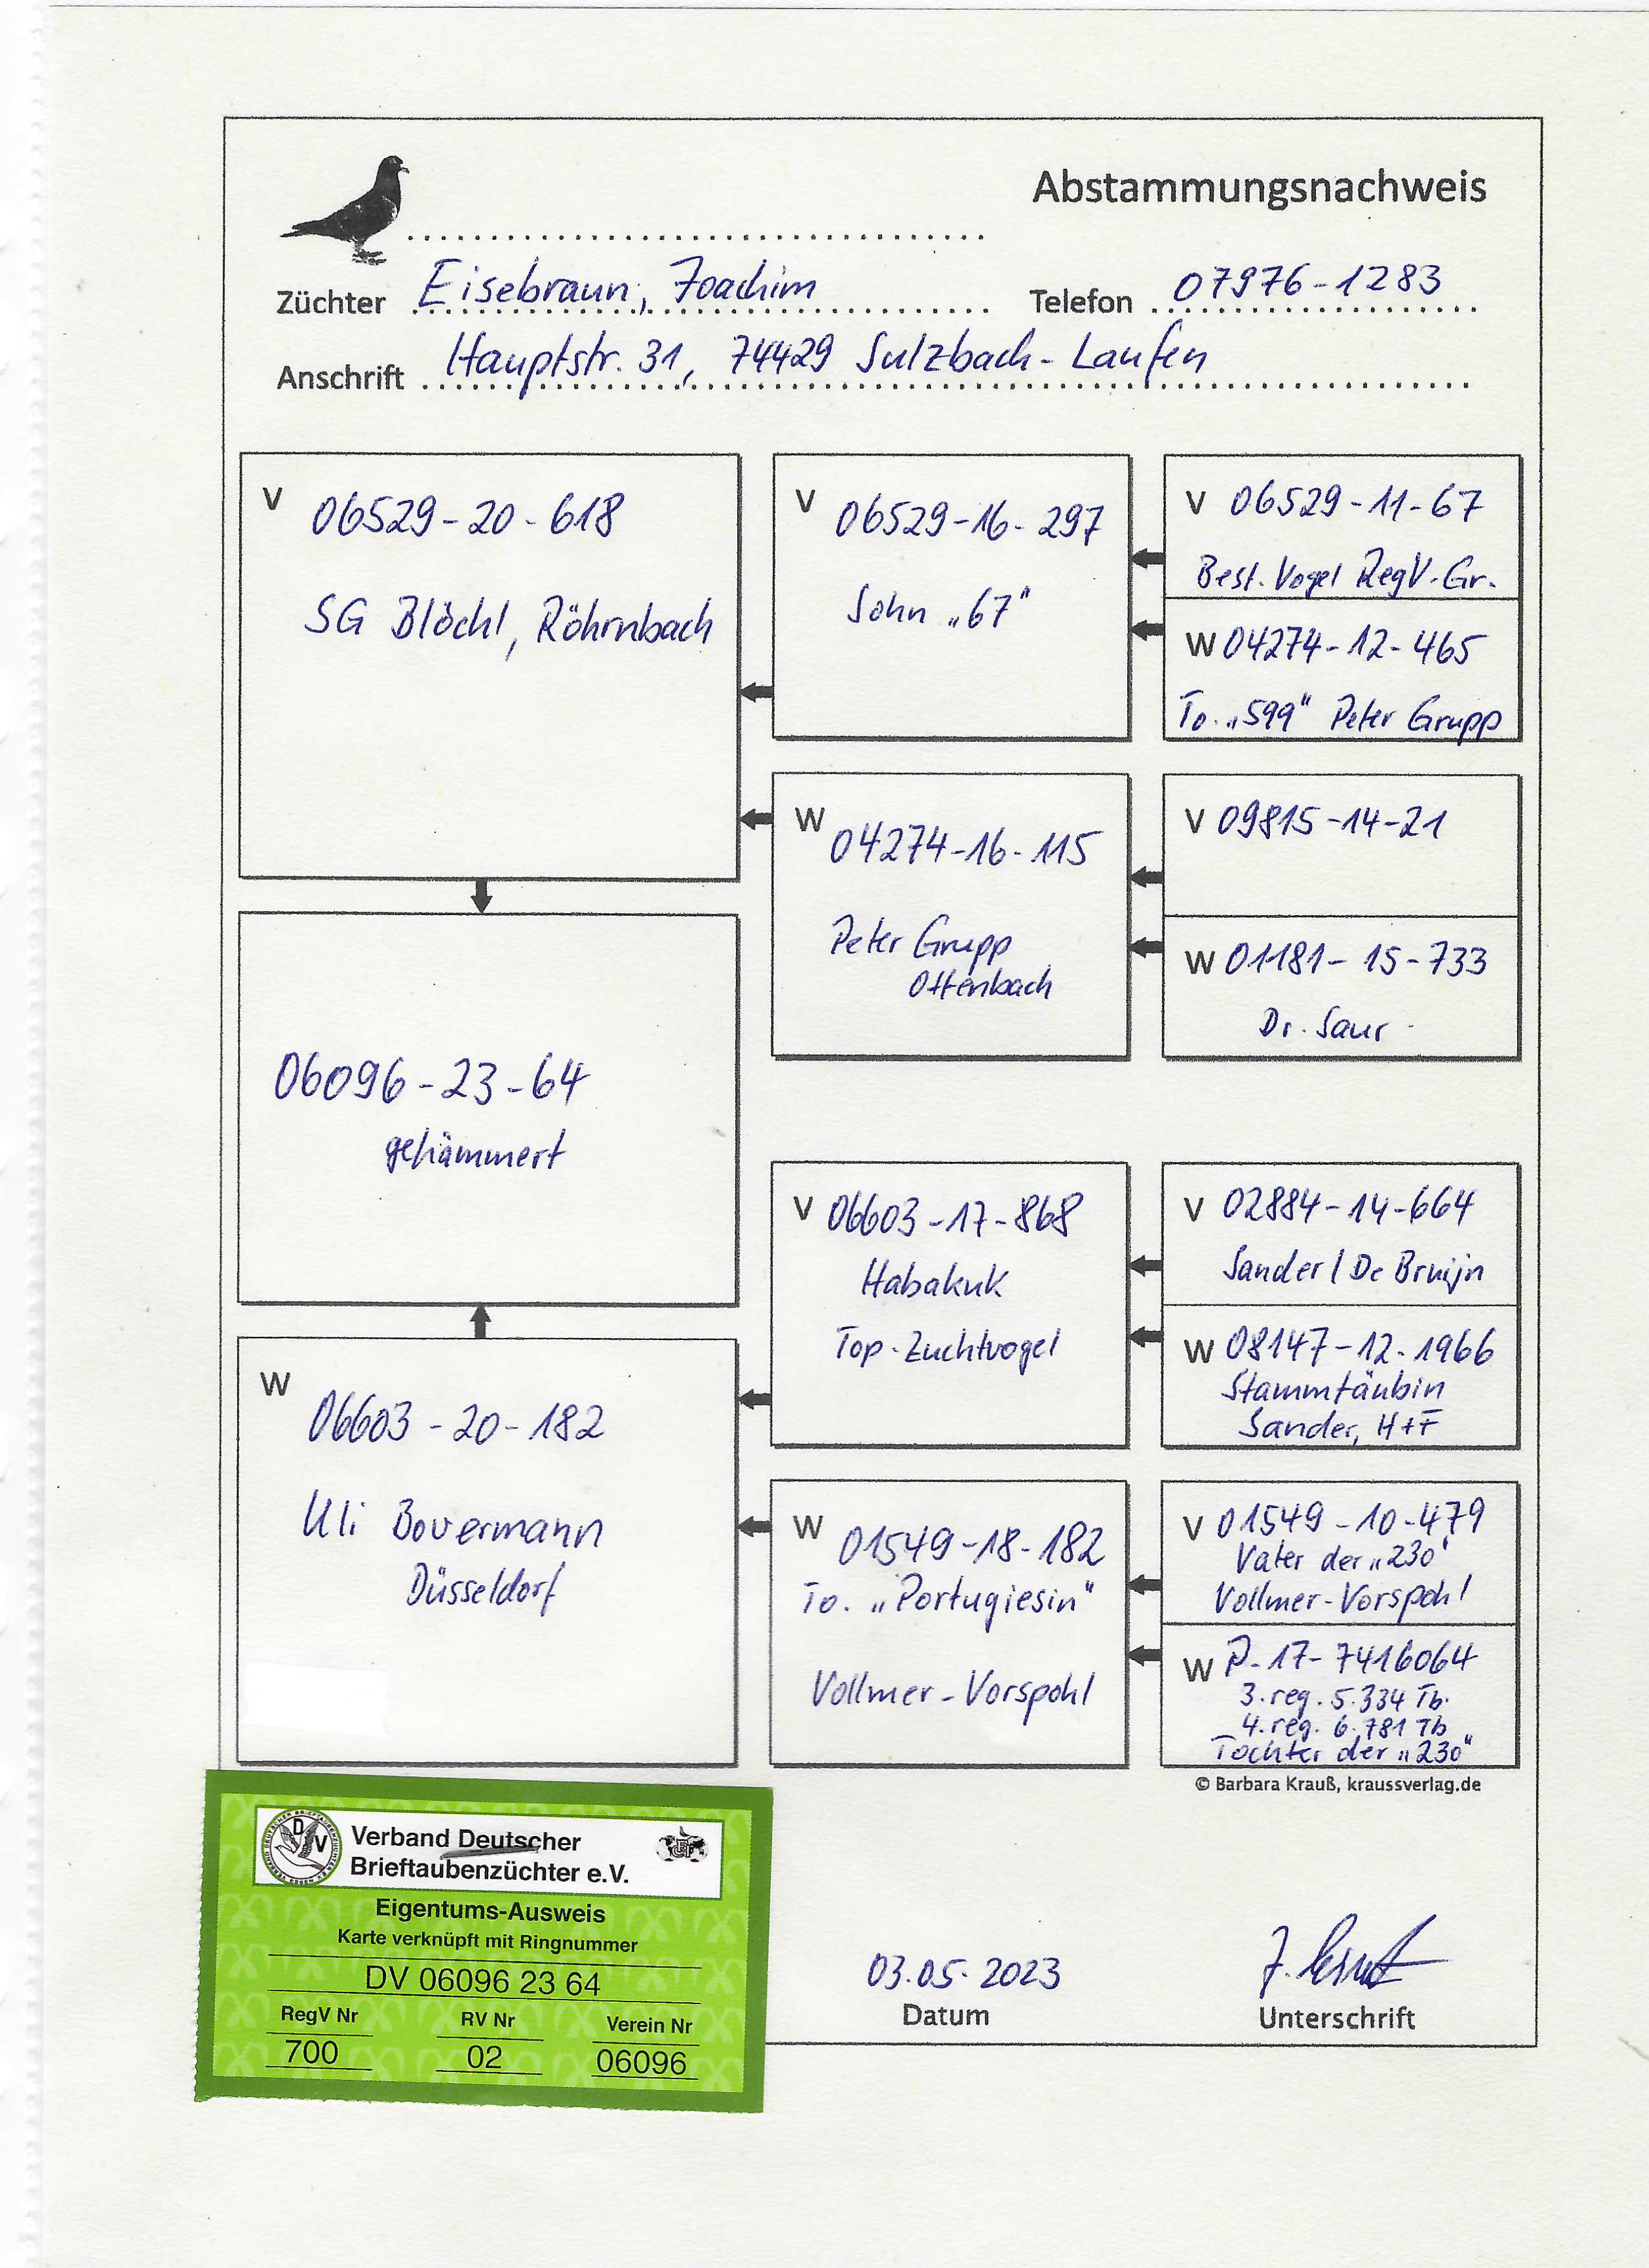 Abstammungsnachweis
Züchter Eisebraun, Joachim Telefon 07976-1283
Anschrift Hauptstr. 31, 74429 Sulzbach-Laufen
V 06529-20-618
SG Blöchl, Röhrnbach
V 06529-16-297
Sohn „67"
V 06529-11-67
Best. Vogel RegV-Gr.
W 04274-12-465
To. „599" Peter Grupp
W 04274-16-115
Peter Grupp
Ottenbach
V 09815-14-21
W 01181-15-733
Dr. Saur
06096-23-64
gehämmert
W 06603-20-182
Uli Bovermann
Düsseldorf
V 06603-17-868
Habakuk
Top-Zuchtvogel
V 02884-14-664
Sander / De Bruijn
W 08147-12-1966
Stammtäubin
Sander, H+F
W 01549-18-182
To. „Portugiesin"
Vollmer-Vorspohl
V 01549-10-479
Vater der „230"
Vollmer-Vorspohl
W P-17-7416064
3. reg. 5.334 Tb.
4. reg. 6.781 Tb
Tochter der „230"
© Barbara Krauß, kraussverlag.de
DV
Verband Deutscher
Brieftaubenzüchter e.V.
Eigentums-Ausweis
Karte verknüpft mit Ringnummer
DV 06096 23 64
RegV Nr RV Nr Verein Nr
700 02 06096
03.05.2023
Datum Unterschrift